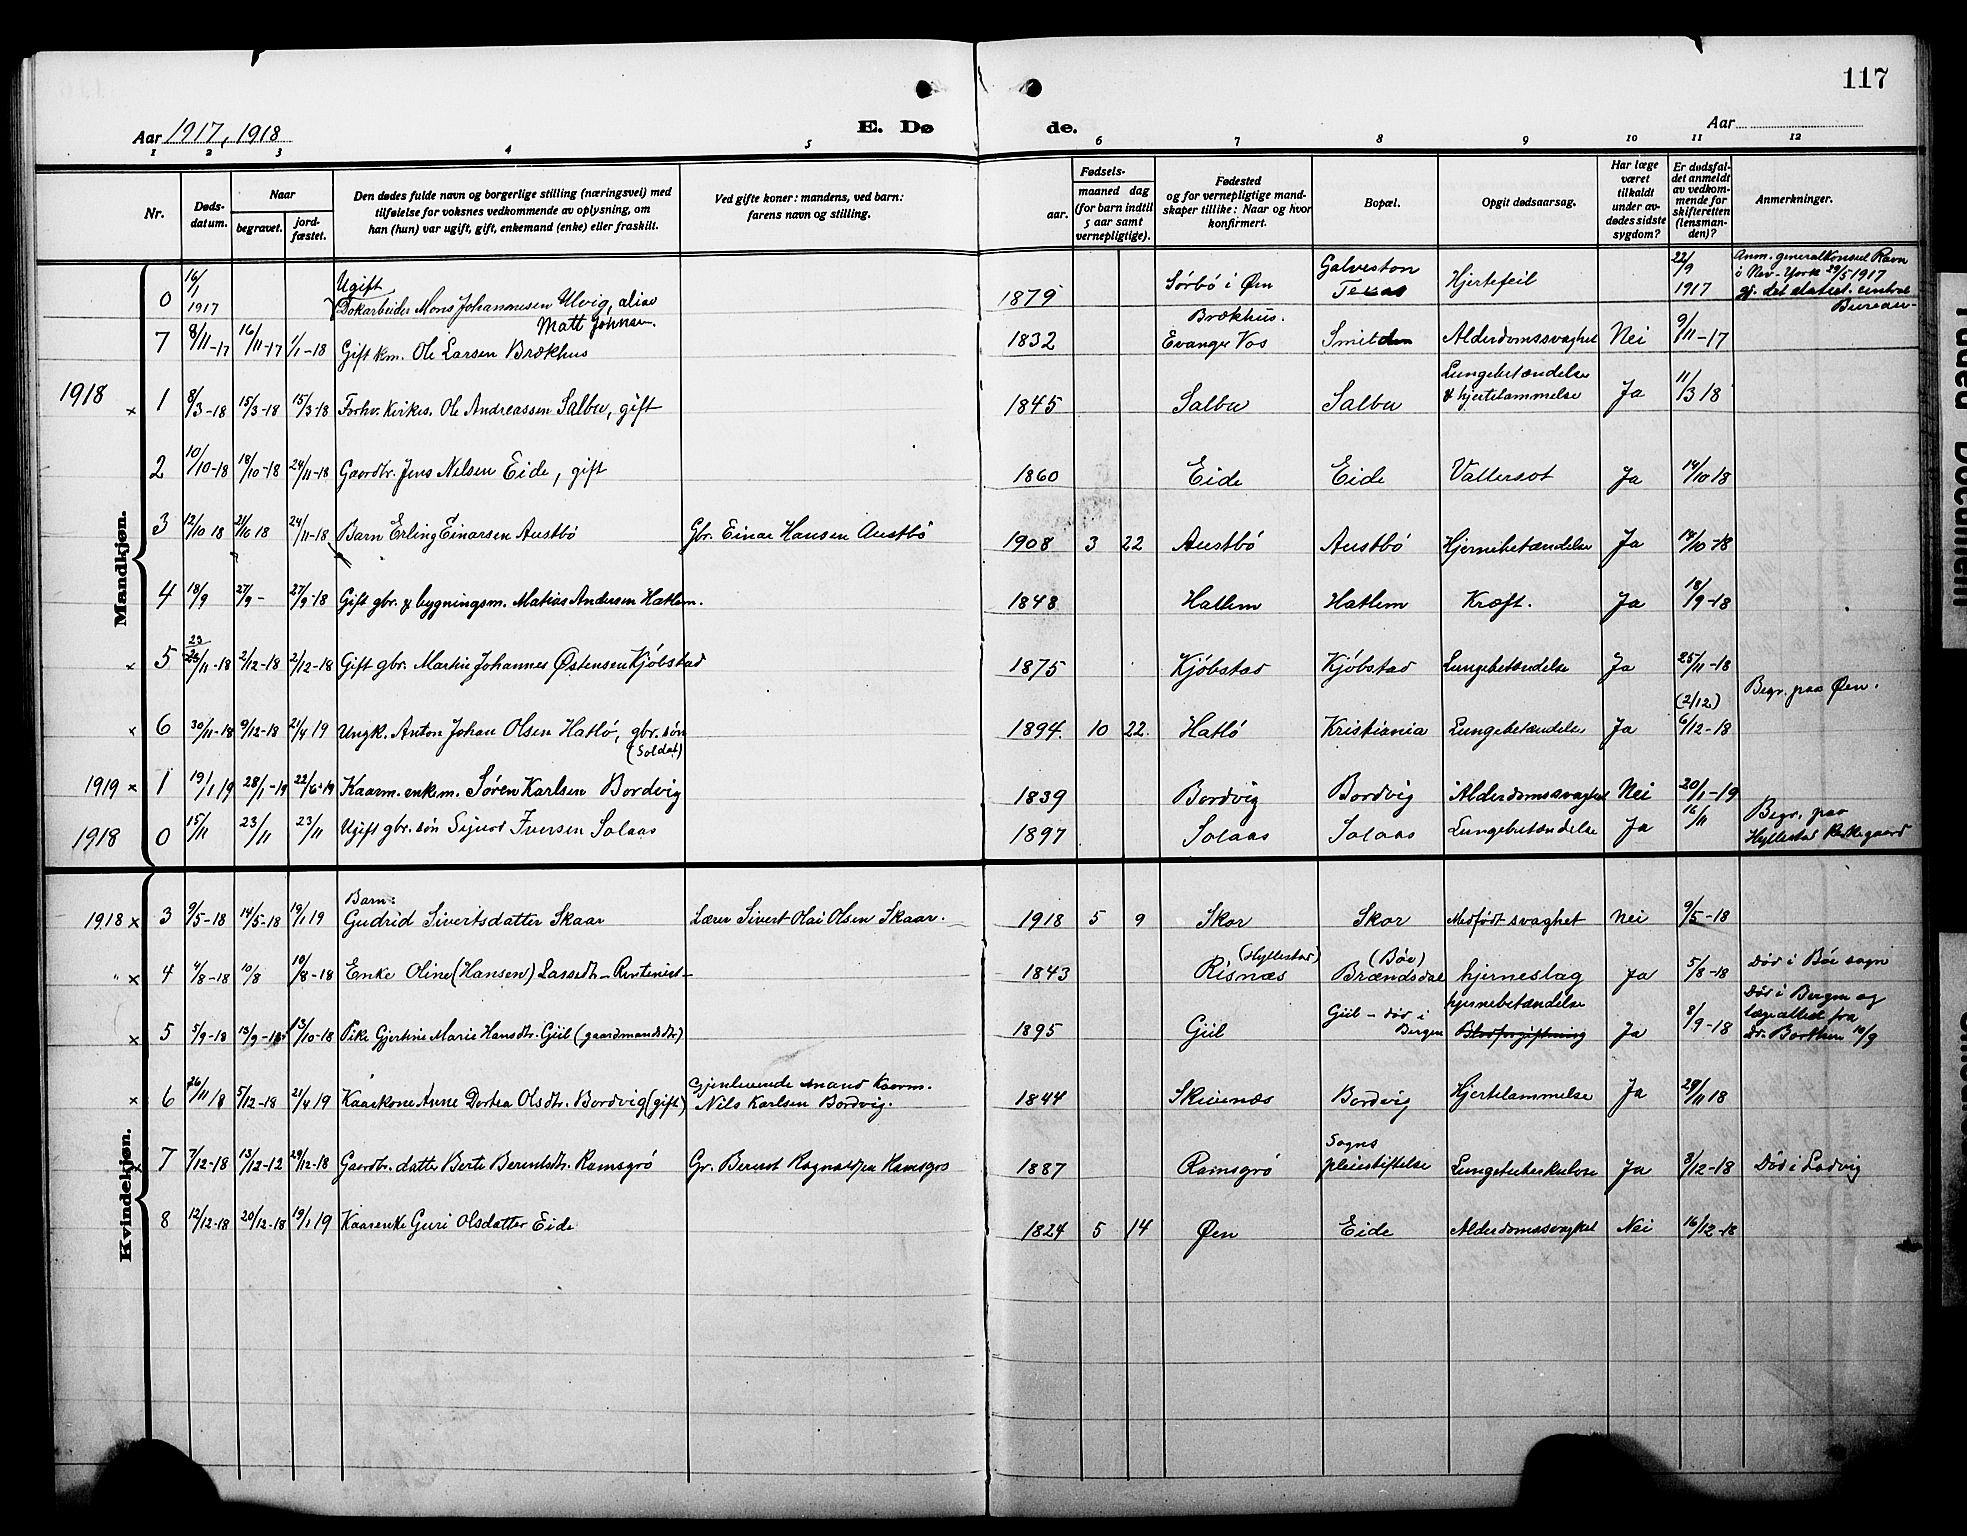 117
Aar 1917, 1918
E. Dø de.
Aar
1 2 3 4 5 6 7 8 9 10 11 12
Nr.
Døds-
datum.
Naar
begravet.
jord-
fæstet.
Den dødes fulde navn og borgerlige stilling (næringsvei) med
tilføielse for voksnes vedkommende av oplysning, om
han (hun) var ugift, gift, enkemand (enke) eller fraskilt.
Ved gifte koner: mandens, ved barn:
farens navn og stilling.
Fødsels-
aar.
maaned dag
(for barn indtil
5 aar samt
vernepligtige).
Fødested
og for vernepligtige mand-
skaper tillike: Naar og hvor
konfirmert.
Bopæl.
Opgit dødsaarsag.
Har læge
været
tilkaldt
under av-
dødes sidste
sygdom?
Er dødsfal-
det anmeldt
av vedkom-
mende for
skifteretten
(lensman-
den)?
Anmerkninger.
Mandkjøn.
0 16/1 1917 Ugift
Dokarbeider Mons Johannesen Ulvig, alias
Matt Johnsen. 1879 Sørbø i Øen Galveston
Texas Hjertefeil 22/9 1917 Anm. generalkonsul Ravn
i New-York 29/5 1917
gj. det statist. central
Bureau
7 8/11-17 16/11-17 1/1-18 Gift km. Ole Larsen Brækhus 1832 Brækhus.
Evanger Vos Smilden Alderdomssvaghet Nei 9/11-17
1918 x 1 8/3-18 15/3-18 15/3-18 Forhv. kirkes. Ole Andreassen Salbu, gift 1845 Salbu Salbu Lungebetændelse
& hjertelammelse Ja 11/3 18
2 10/10-18 18/10-18 24/11-18 Gaardbr. Jens Nilsen Eide, gift 1860 Eide Eide Vattersot Ja 14/10 18
3 12/10 18 21/10 18 24/11-18 Barn Erling Einarsen Austbø Gbr. Einar Hansen Austbø 1908 3 22 Austbø Austbø Hjernebetændelse Ja 14/10-18
4 18/9 27/9 - 27/9-18 Gift gbr. & bygningsm. Matias Andersen Hatlem. 1848 Hatlem Hatlem Kræft. Ja 18/9-18
x 5 23/11-18 2/12-18 2/12-18 Gift gbr. Martin Johannes Østensen Kjøbstad 1875 Kjøbstad Kjøbstad Lungebetændelse Ja 25/11-18
x 6 30/11-18 9/12-18 21/4 19 Ungk. Anton Johan Olsen Hatlø, gbr. søn
(Soldat) 1894. 10 22. Hatlø Kristiania Lungebetændelse Ja (2/12)
6/12-18 Begr. paa Øen.
1919 x 1 19/1 19 28/1-19 22/6-19 Kaarm. enkem. Søren Karlsen Bordvig 1839 Bordvig Bordvig Alderdomssvaghet Nei 20/1-19
1918 0 15/11 23/11 23/11 Ugift gbr. søn Sigurd Iversen Solaas 1897 Solaas Solaas Lungebetændelse Ja 16/11 Begr. paa
Hyllestad kirkegaard
Kvindekjøn.
1918 x 3 9/5-18 14/5-18 19/1 19 Barn:
Gudrid Sivertsdatter Skaar Lærer Sivert Olai Olsen Skaar. 1918 5 9 Skor Skor Medfødt svaghet Nei 9/5-18
" x 4 4/8-18 10/8 10/8-18 Enke Oline (Hansen) Lassedtr- Rentenist - 1843 (Hyllestad)
Risnæs (Bøe)
Brændsdal hjerneslag Ja 5/8-18 Død i Bøe sogn
x 5 5/9-18 13/9-18 13/10-18 Pike Gjertine Marie Hansdtr. Giil (gaardmandsdtr) 1895 Giil Giil - død i
Bergen hjernebetændelse
Blodforgiftning Ja 8/9-18 Død i Bergen og
lægeattest fra
Dr. Borthen 10/9
x 6 26/11 18 5/12-18 21/4 19 Kaarkone Anne Dortea Olsdtr. Bordvig (gift) Gjenlevende mand Kaarm.
Nils Karlsen Bordvig. 1844 Skivenæs Bordvig Hjertelammelse Ja 29/11 18
x 7 7/12-18 13/12-12 29/12-18 Gaardbr. datter Berte Berentsdtr. Ramsgrø Gr. Berent Ragnald Ramsgrø 1887 Ramsgrø Sogns
pleiestiftelse Lungetuberkulose Ja 8/12-18 Død i Ladvig
8 12/12-18 20/12-18 19/1 19 Kaarenke Guri Olsdatter Eide 1824 5 14 Øen Eide Alderdomssvaghet Nei 16/12-18